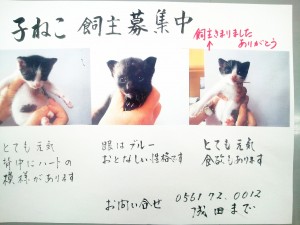 子ねこ 飼主募集中
飼主きまりました
↑ ありがとう
とても元気
背中にハートの
模様があります
眼はブルー
おとなしい性格です
とても元気
食欲もあります
お問い合せ 0561 72.0012
浅田まで